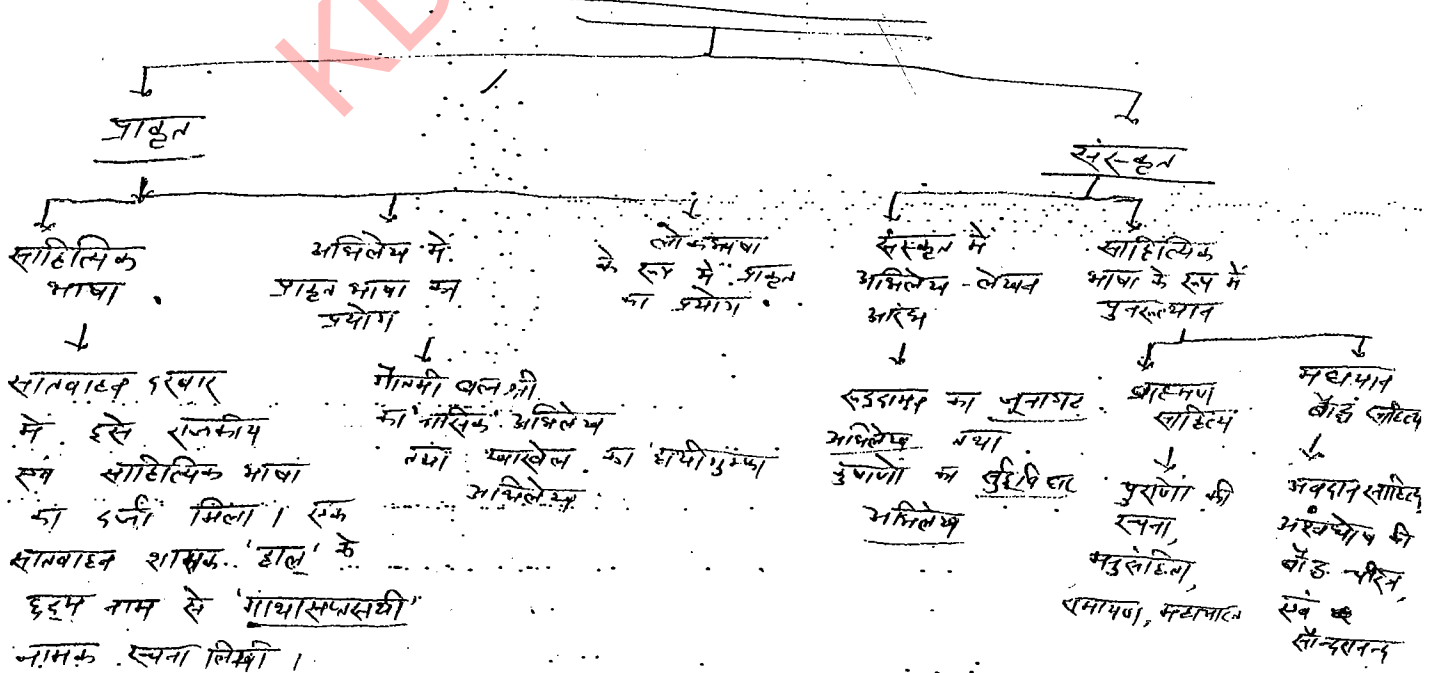 KD
प्राकृत
संस्कृत
साहित्यिक
भाषा
अभिलेख में
प्राकृत भाषा का
प्रयोग
लोकभाषा
के रूप में प्राकृत
का प्रयोग
संस्कृत में
अभिलेख-लेखन
आरंभ
साहित्यिक
भाषा के रूप में
पुनरुत्थान
सातवाहन दरबार
में इसे राजकीय
एवं साहित्यिक भाषा
का दर्जा मिला। एक
सातवाहन शासक 'हाल' के
छद्म नाम से 'गाथासप्तसथी'
नामक रचना लिखी।
गौतमी बलश्री
का नासिक अभिलेख
तथा खारवेल का हाथीगुम्फा
अभिलेख
रुद्रदामन का जूनागढ़
अभिलेख तथा
कुषाणों का
अभिलेख
ब्राह्मण
साहित्य
पुराणों की
रचना,
मनुसंहिता,
रामायण, महाभारत
महायान
बौद्ध साहित्य
अवदान साहित्य,
अश्वघोष की
बौद्ध चरित्र,
एवं
सौन्दरानन्द